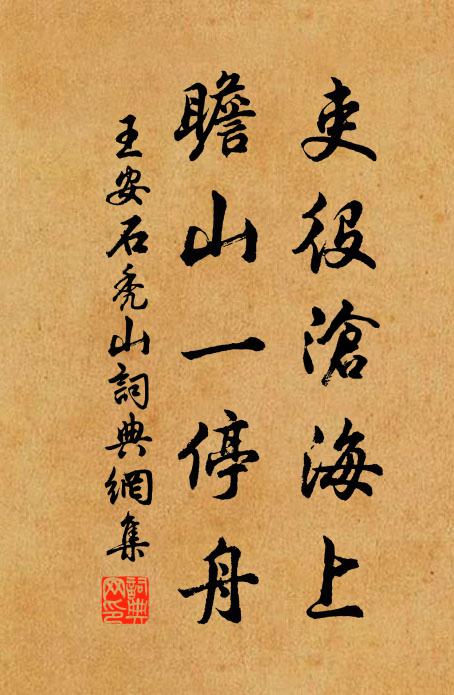 吏役滄海上
瞻山一停舟
王安石禿山詞典網集
詞典網印